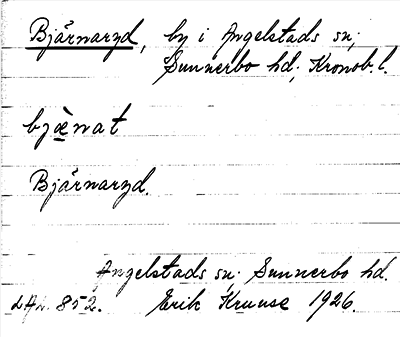 Bjärnaryd, by i Angelstads sn;
Sunnerbo hd; Kronob. l.
bjæ̀nat
Bjärnaryd.
Angelstads sn; Sunnerbo hd.
852. Erik Kruuse 1926.